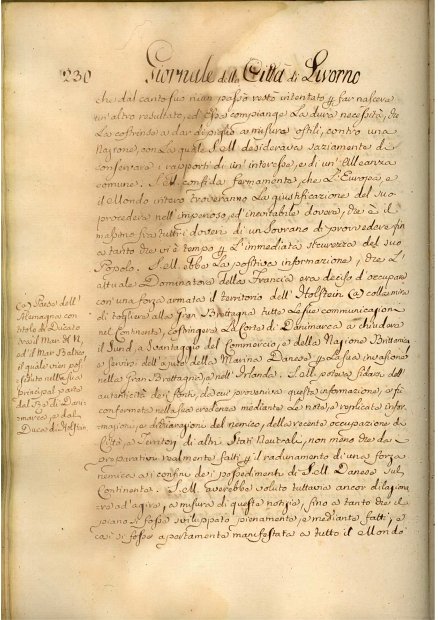 230
Giornale della Città di Livorno
che dal canto suo niun passo restò intentato p far nascere
un'altro resultato, ed Essa compiange la dura necessità, che
la costrinse a dar di piglio a misure ostili, contro una
Nazione, con la quale S. M. desiderava saziamente di
conservare i rapporti di un'interesse, e di un'Alleanza
comune. S. M. confida fermamente, che L'Europa, e
il Mondo intero troveranno la giustificazione del suo
procedere nell'imperioso, ed inevitabile dovere, che è il
massimo fra tutti i doveri di un Sovrano di provvedere fin
a tanto che vi è tempo p L'immediata sicurezza del suo
Popolo. S. M. ebbe la positiva informazione, che L'
attuale Dominatore della Francia era deciso d'occupare
con una forza armata il territorio dell'Holstein (a) colla mira
di togliere alla Gran Brettagna tutte le sue comunicazioni
nel Continente, costringere la Corte di Danimarca a chiudere
il Sund, a svantaggio del Commercio, e della Nazione Brittanica
e servirsi dell'ajuto della Marina Danese p la sua invasione
nella Gran Brettagna, e nell'Irlanda. S. M. poteva fidarsi dell'
autenticità dei fonti, da cui proveniva questa informazione, e fu
confermata nella sua credenza mediante le note, e replicate infor
mazioni, e dichiarazioni del nemico, della recente occupazione di
Città, e Territorj di altri Stati Neutrali, non meno che da
preparativi realmente fatti p il radunamento di una forza
nemica ai confini dei possedimenti di S. M. Danese sul
Continente. S. M. averebbe voluto tuttavia ancor dilazione
are ad agire, a misura di queste notizie, fino a tanto che il
piano si fosse sviluppato pienamente, e mediante fatti, e
così si fosse apertamente manifestata a tutto il Mondo
(a) Paese dell'
Alemagna con
titolo di Ducato
tra il Mar del N.
ed il Mar Baltico
il quale vien pos
seduto nella sua
principal parte
dal Re di Dani
marca, e dal
Duca di Holstein